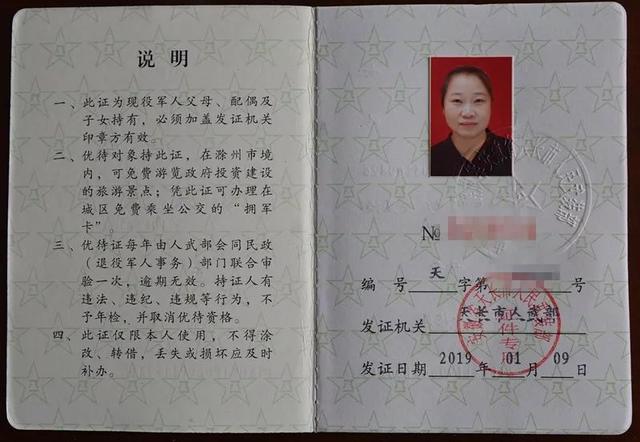 说明
一、此证为现役军人父母、配偶及
子女持有，必须加盖发证机关
印章方有效。
二、优待对象持此证，在滁州市境
内，可免费游览政府投资建设
的旅游景点；凭此证可办理在
城区免费乘坐公交的“拥军
卡”。
三、优待证每年由人武部会同民政
（退役军人事务）部门联合审
验一次，逾期无效。持证人有
违法、违纪、违规等行为，不
予年检，并取消优待资格。
四、此证仅限本人使用，不得涂
改、转借，丢失或损坏应及时
补办。
№
编 号 天 字第 号
发证机关 天长市人武部
发证日期 2019 年 01 月 09 日
证件专用